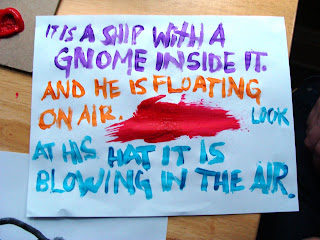 IT IS A SHIP WITH A
GNOME INSIDE IT.
AND HE IS FLOATING
ON AIR. LOOK
AT HIS HAT IT IS
BLOWING IN THE AIR.